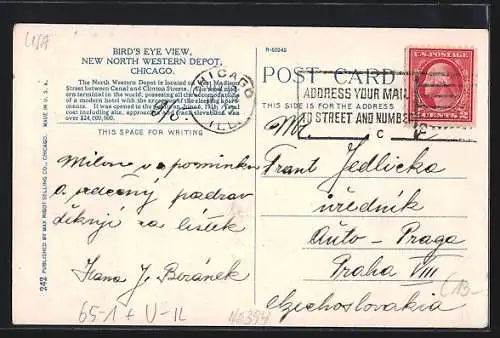 USA
BIRD'S EYE VIEW,
NEW NORTH WESTERN DEPOT,
CHICAGO.
The North Western Depot is located on West Madison
Street between Canal and Clinton Streets. The most
tern terminal in the world, possessing all the accommodations
of a modern hotel with the exception of the sleeping
It was opened to the
cost including site, and track elevation was over
$24,000,000.
THIS SPACE FOR WRITING
Milou vzpomínku
a srdečný pozdrav
děkuji za lístek
Hana J. Beránek
242 PUBLISHED BY MAX RIGOT SELLING CO., CHICAGO. MADE IN U. S. A.
CHICAGO
ILL.
R-60245
POST CARD
THIS SIDE IS FOR THE ADDRESS
ADDRESS YOUR MAIL
TO STREET AND NUMBER
C
U.S. POSTAGE
2 CENTS 2
Mr.
Frant Jedlicka
úředník
Auto-Praga
Praha VIII
Czechoslovakia
65-1+ U-IL
No394